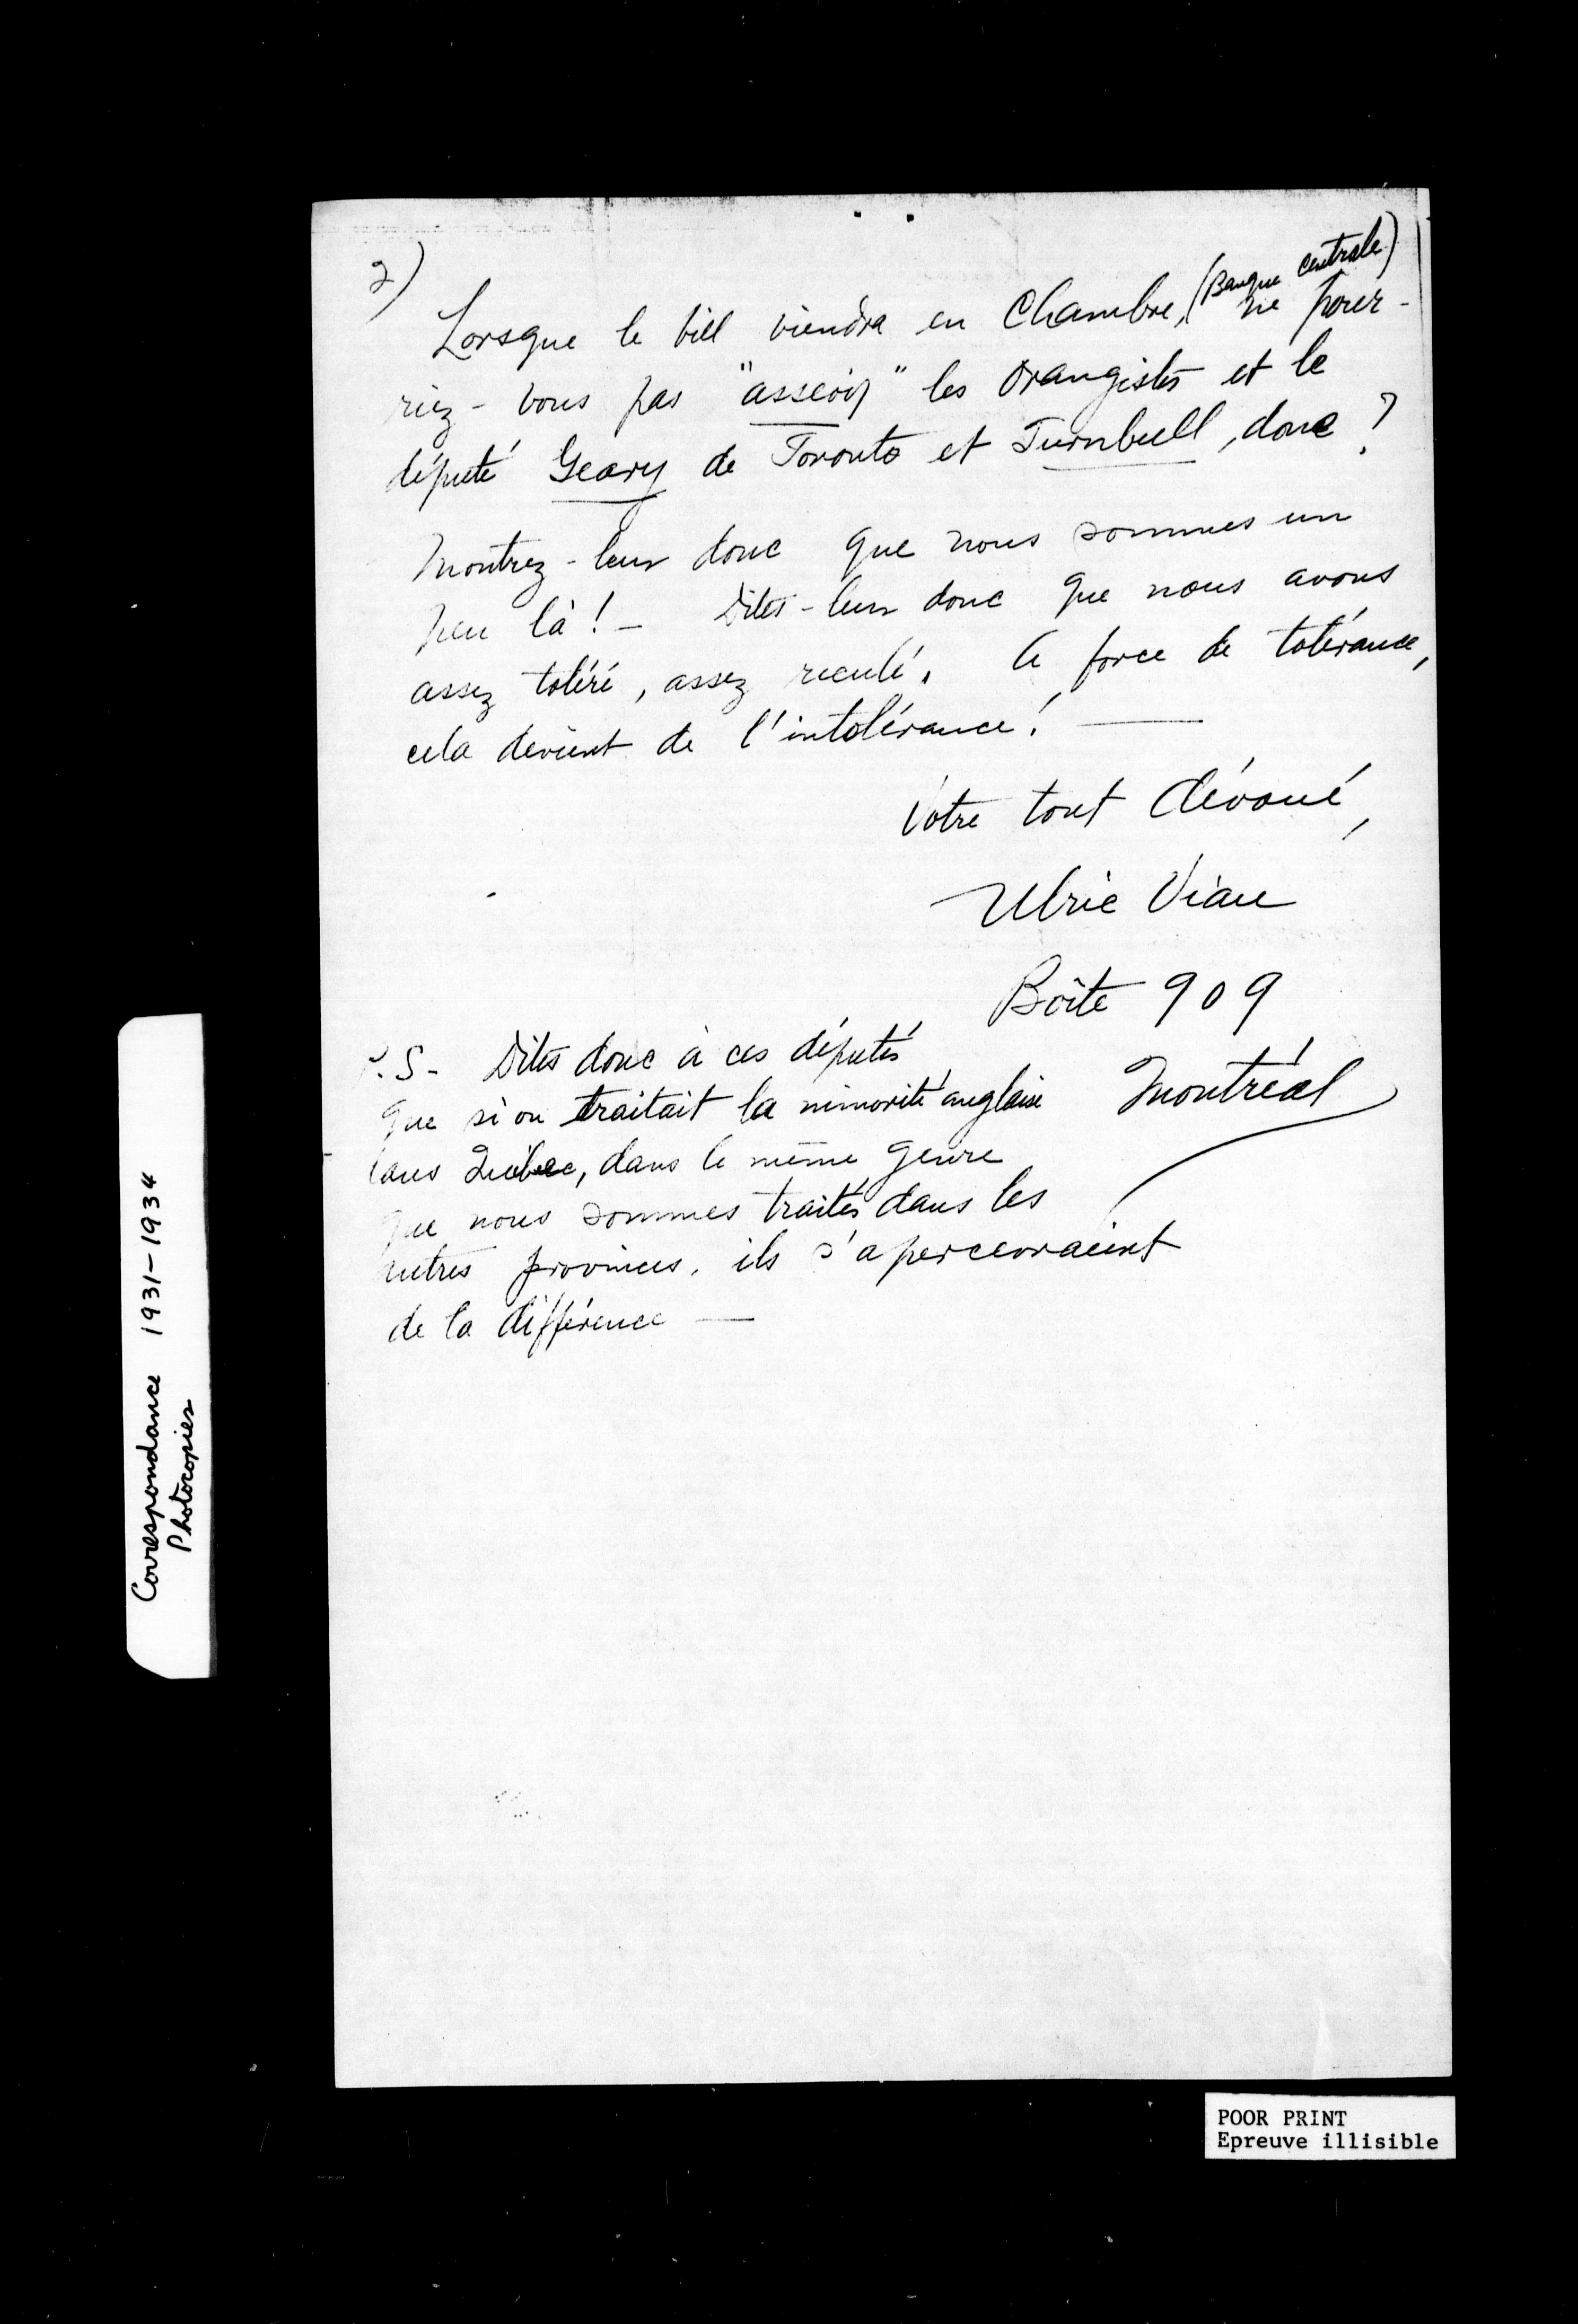 2)
Lorsque le bill viendra en Chambre, (Banque Centrale) ne pour-
riez-vous pas "asseoir" les Orangistes et le
député Geary de Toronto et Turnbull, donc ?
Montrez-leur donc que nous sommes un
peu là ! - Dites-leur donc que nous avons
assez toléré, assez reculé. A force de tolérance,
cela devient de l'intolérance !
Votre tout dévoué,
Ulric Viau
Boîte 909
Montréal
P.S- Dites donc à ces députés
que si on traitait la minorité anglaise
dans Québec, dans le même genre
que nous sommes traités dans les
autres provinces, ils s'apercevraient
de la différence —
Correspondance 1931-1934
Photocopies
POOR PRINT
Epreuve illisible